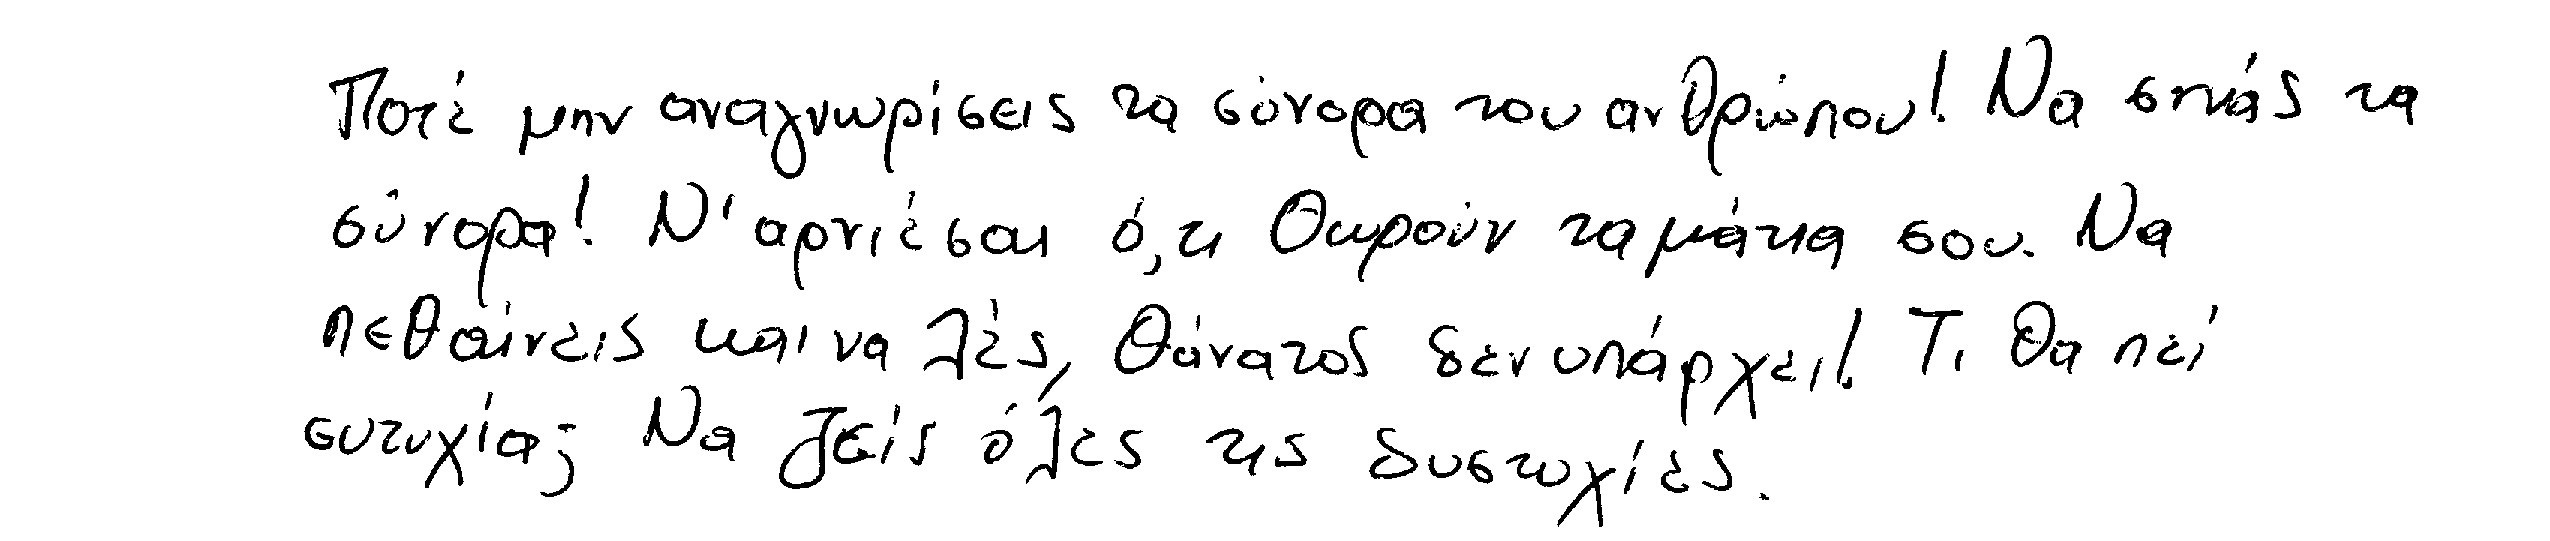 Ποτέ μην αναγνωρίσεις τα σύνορα του ανθρώπου! Να σπάς τα
σύνορα! Ν' αρνιέσαι ό,τι θωρούν τα μάτια σου. Να
πεθαίνεις και να λές, θάνατος δεν υπάρχει! Τι θα πεί
ευτυχία; Να ζείς όλες τις δυστυχίες.